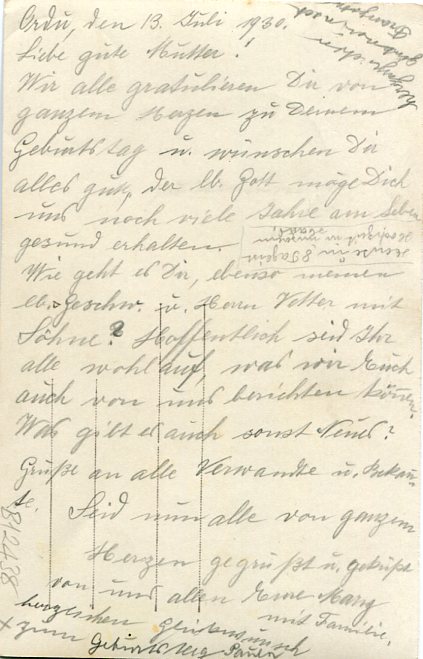 Ordu, den 13. Juli 1930.
Liebe gute Mutter!
Wir alle gratulieren Dir von
ganzem Herzen zu Deinem
Geburtstag u. wünschen Dir
alles gute, der lb. Gott möge Dich
uns noch viele Jahre am Leben
gesund erhalten.
Heute in 8 Tagen
Hochzeit in unserem
Wie geht es Dir, ebenso meinen
lb. Geschw. u. Herrn Vetter mit
Söhne? Hoffentlich seid Ihr
alle wohlauf, was wir Euch
auch von uns berichten können.
Was gibt es auch sonst Neues?
Grüße an alle Verwandte u. Bekann-
te.
Seid nun alle von ganzem
Herzen gegrüßt u. geküßt
von uns allen Eure Mary
mit Familie.
herzlichen
x zum Geburtstag Paula
B12438